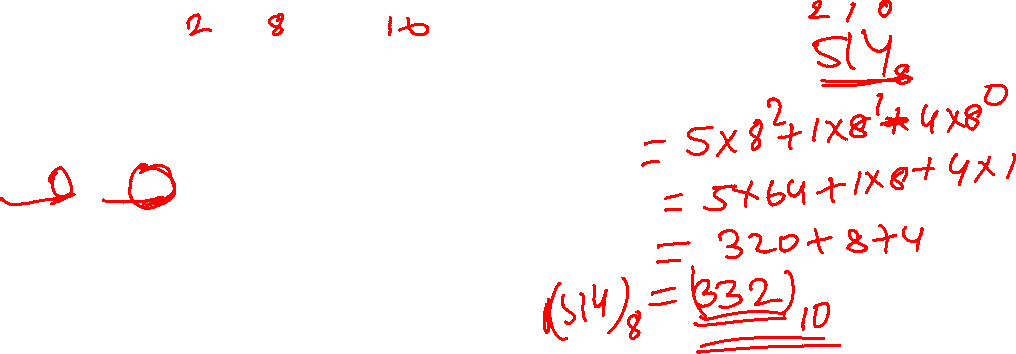 2 8 16
2 1 0
514₈
= 5×8²+1×8¹+4×8⁰
= 5×64+1×8+4×1
= 320+8+4
(514)₈ = (332)₁₀